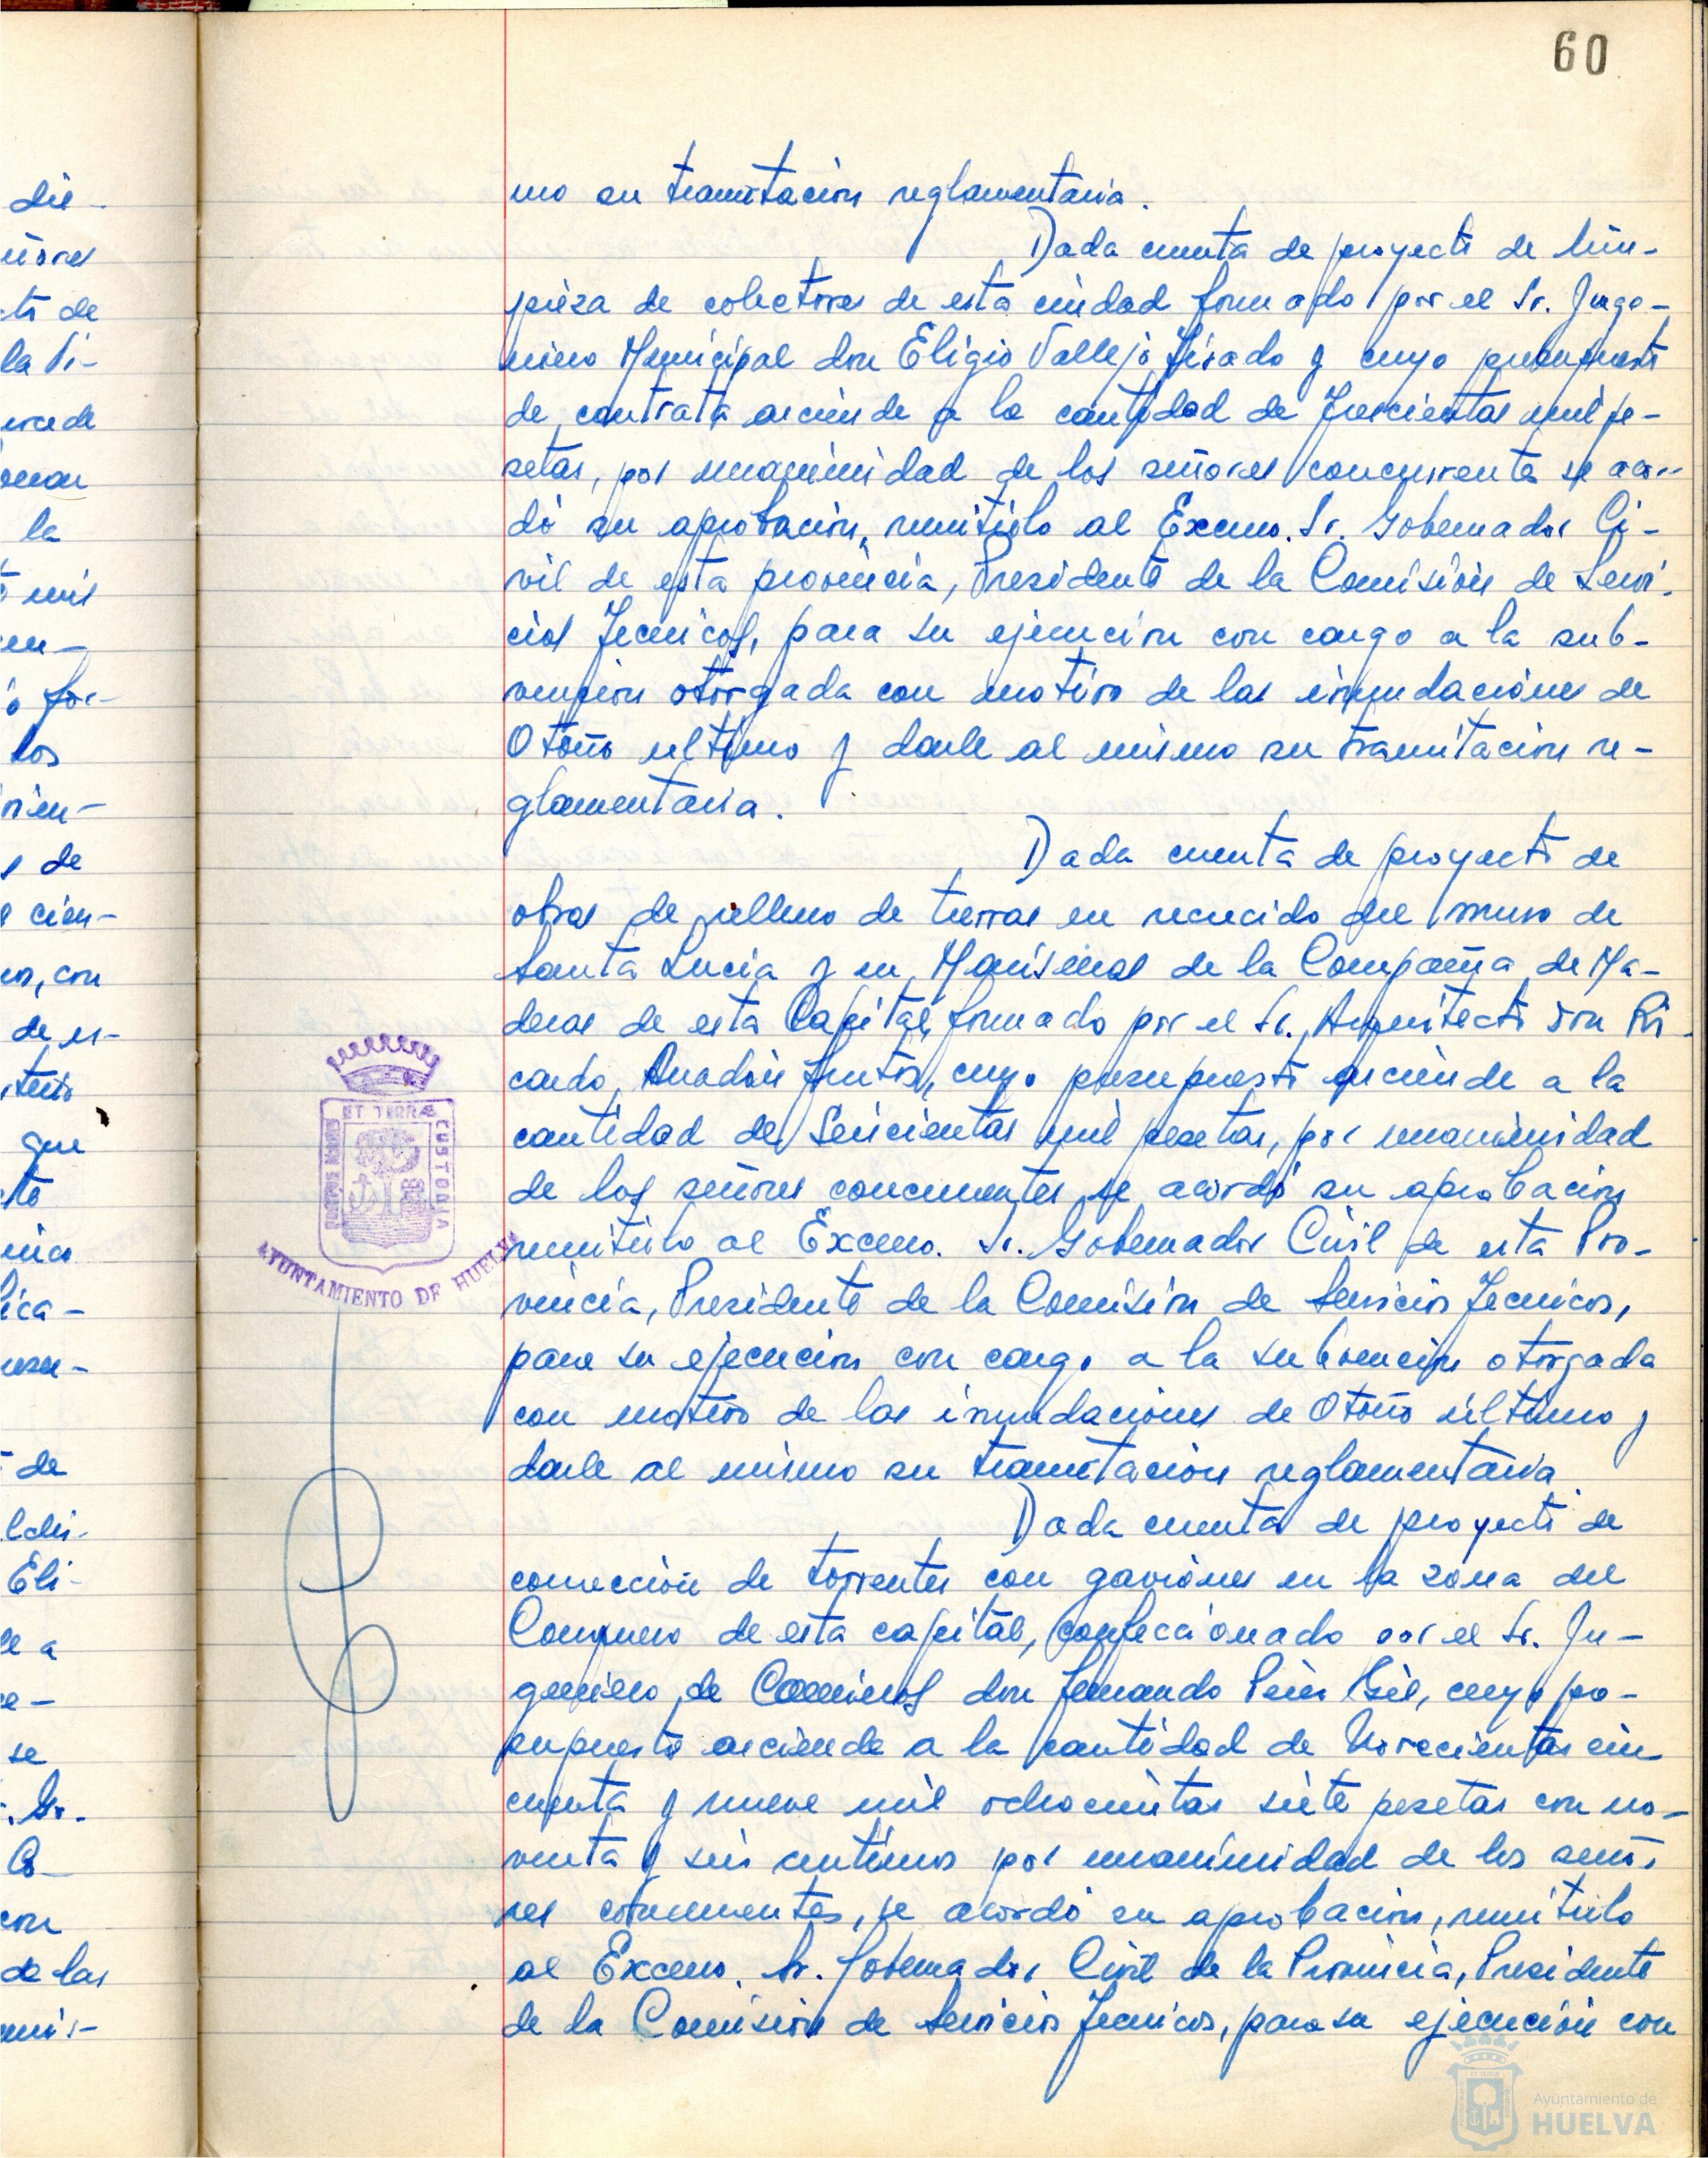 60
mo su tramitación reglamentaria.
Dada cuenta de proyecto de lim-
pieza de colectores de esta ciudad formado por el Sr. Inge-
niero Municipal don Eligio Vallejo Tirado y cuyo presupuesto
de contrata asciende a la cantidad de Trescientas mil pe-
setas, por unanimidad de los señores concurrentes se acor-
dó su aprobación, remitirlo al Excmo. Sr. Gobernador Ci-
vil de esta provincia, Presidente de la Comisión de Servi-
cios Tecnicos, para su ejecución con cargo a la sub-
vención otorgada con motivo de las inundaciones de
Otoño ultimo y darle al mismo su tramitación re-
glamentaria.
Dada cuenta de proyecto de
obras de relleno de tierras en recrecido del muro de
Santa Lucia y en Marismas de la Compañía de Ma-
deras de esta Capital, formado por el Sr. Arquitecto don Ri-
cardo Anadón Frutos, cuyo presupuesto asciende a la
cantidad de Seiscientas mil pesetas, por unanimidad
de los señores concurrentes se acordó su aprobación
remitirlo al Excmo. Sr. Gobernador Civil de esta Pro-
vincia, Presidente de la Comisión de Servicios Tecnicos,
para su ejecución con cargo a la subvención otorgada
con motivo de las inundaciones de Otoño último y
darle al mismo su tramitación reglamentaria
Dada cuenta de proyecto de
corrección de torrentes con gaviones en la zona del
Conquero de esta capital, confeccionado por el Sr. In-
geniero de Caminos don Fernando Peiro Gil, cuyo pre-
supuesto asciende a la cantidad de Novecientas cin-
cuenta y nueve mil ochocientas siete pesetas con no-
venta y seis centimos por unanimidad de los seño-
res concurrentes, se acordó su aprobación, remitirlo
al Excmo. Sr. Gobernador Civil de la Provincia, Presidente
de la Comisión de Servicios Tecnicos, para su ejecución con
ET TERRÆ
CUSTODIA
PORTUS MARIS
AYUNTAMIENTO DE HUELVA
Ayuntamiento de
HUELVA